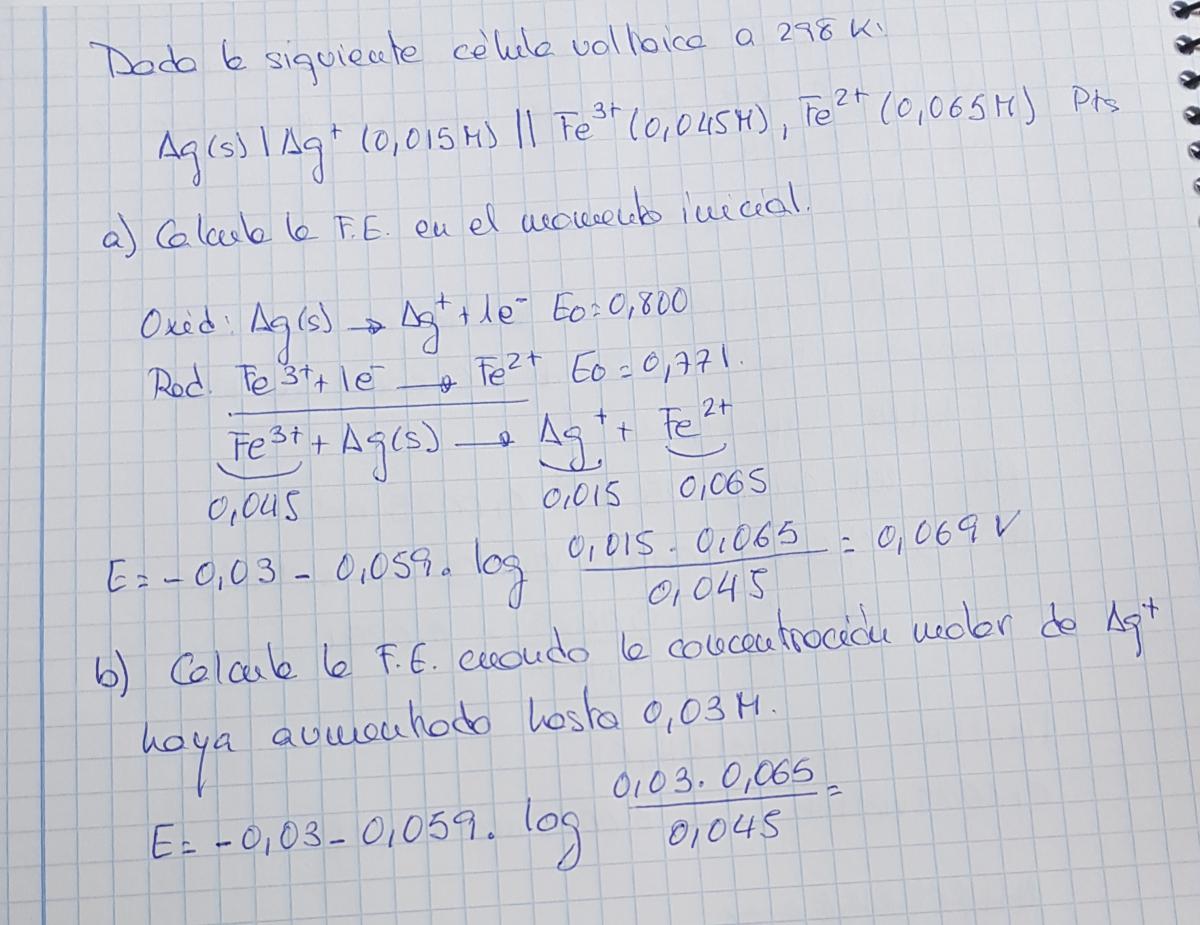 Dada la siguiente célula voltaica a 298 K.
Ag(s) | Ag⁺ (0,015M) || Fe³⁺ (0,045M), Fe²⁺ (0,065M) Pts
a) Calcule la F.E. en el momento inicial.
Oxid: Ag(s) → Ag⁺ + 1e⁻ Eo = 0,800
Red. Fe³⁺ + 1e⁻ → Fe²⁺ Eo = 0,771.
Fe³⁺ + Ag(s) → Ag⁺ + Fe²⁺
0,045 0,015 0,065
E = -0,03 - 0,059 . log (0,015 . 0,065 / 0,045) = 0,069 V
b) Calcule la F.E. cuando la concentración molar de Ag⁺
haya aumentado hasta 0,03 M.
E = -0,03 - 0,059 . log (0,03 . 0,065 / 0,045) =